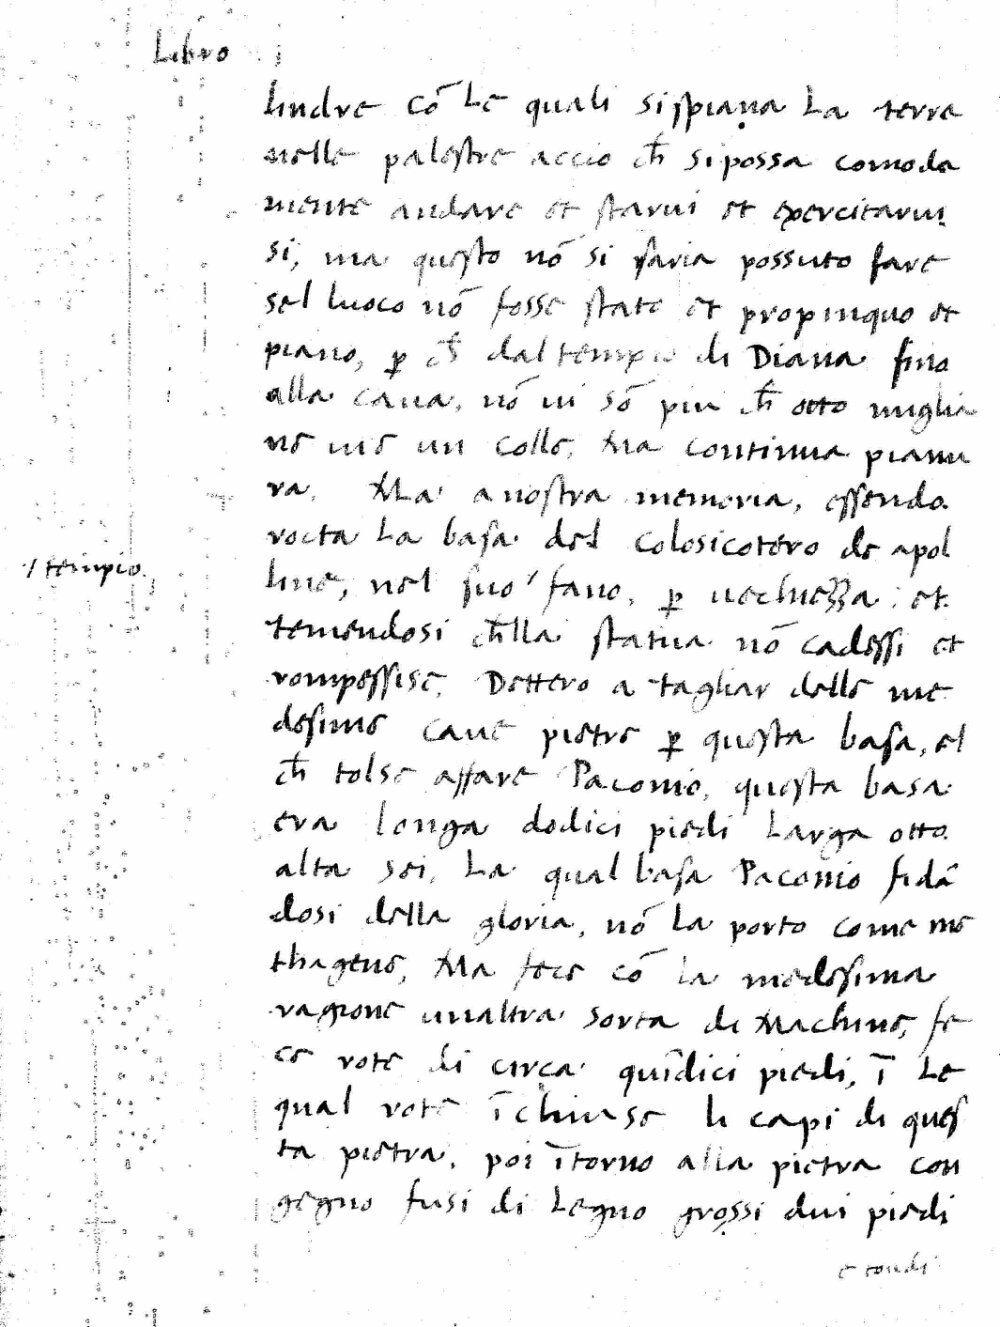 Libro
lindre cō le quali si spiana la terra
nelle palestre accio ch̄ si possa comoda
mente andare et starui et exercitarui
si, ma questo nō si saria possuto fare
sel luoco nō fosse stato et propinquo et
piano, p ch̄ dal tempio di Diana fino
alla caua, nō ui sō piu ch̄ otto miglia
ne mo un colle, Ma continua pianu
ra. Ma a nostra memoria, essendo
rocta la basa del Colosicotero de apol
line, nel suo / fano, p uechiezza, et
temendosi ch̄lla statua nō cadessi et
rompessise, Dettero a tagliar delle me
desime caue pietre p questa basa, el
ch̄ tolse affare Paconio, questa basa
era longa dodici piedi larga otto
alta sei, La qual basa Paconio fidā
dosi della gloria, nō la porto come me
thagene, Ma fece cō la medesima
ragione unaltra sorta di Machine, fe
ce rote di circa quīdici piedi, ī le
qual rote īchiuse li capi di ques
ta pietra, poi ītorno alla pietra con
gegno fusi di legno grossi dui piedi
e tondi
/ tempio